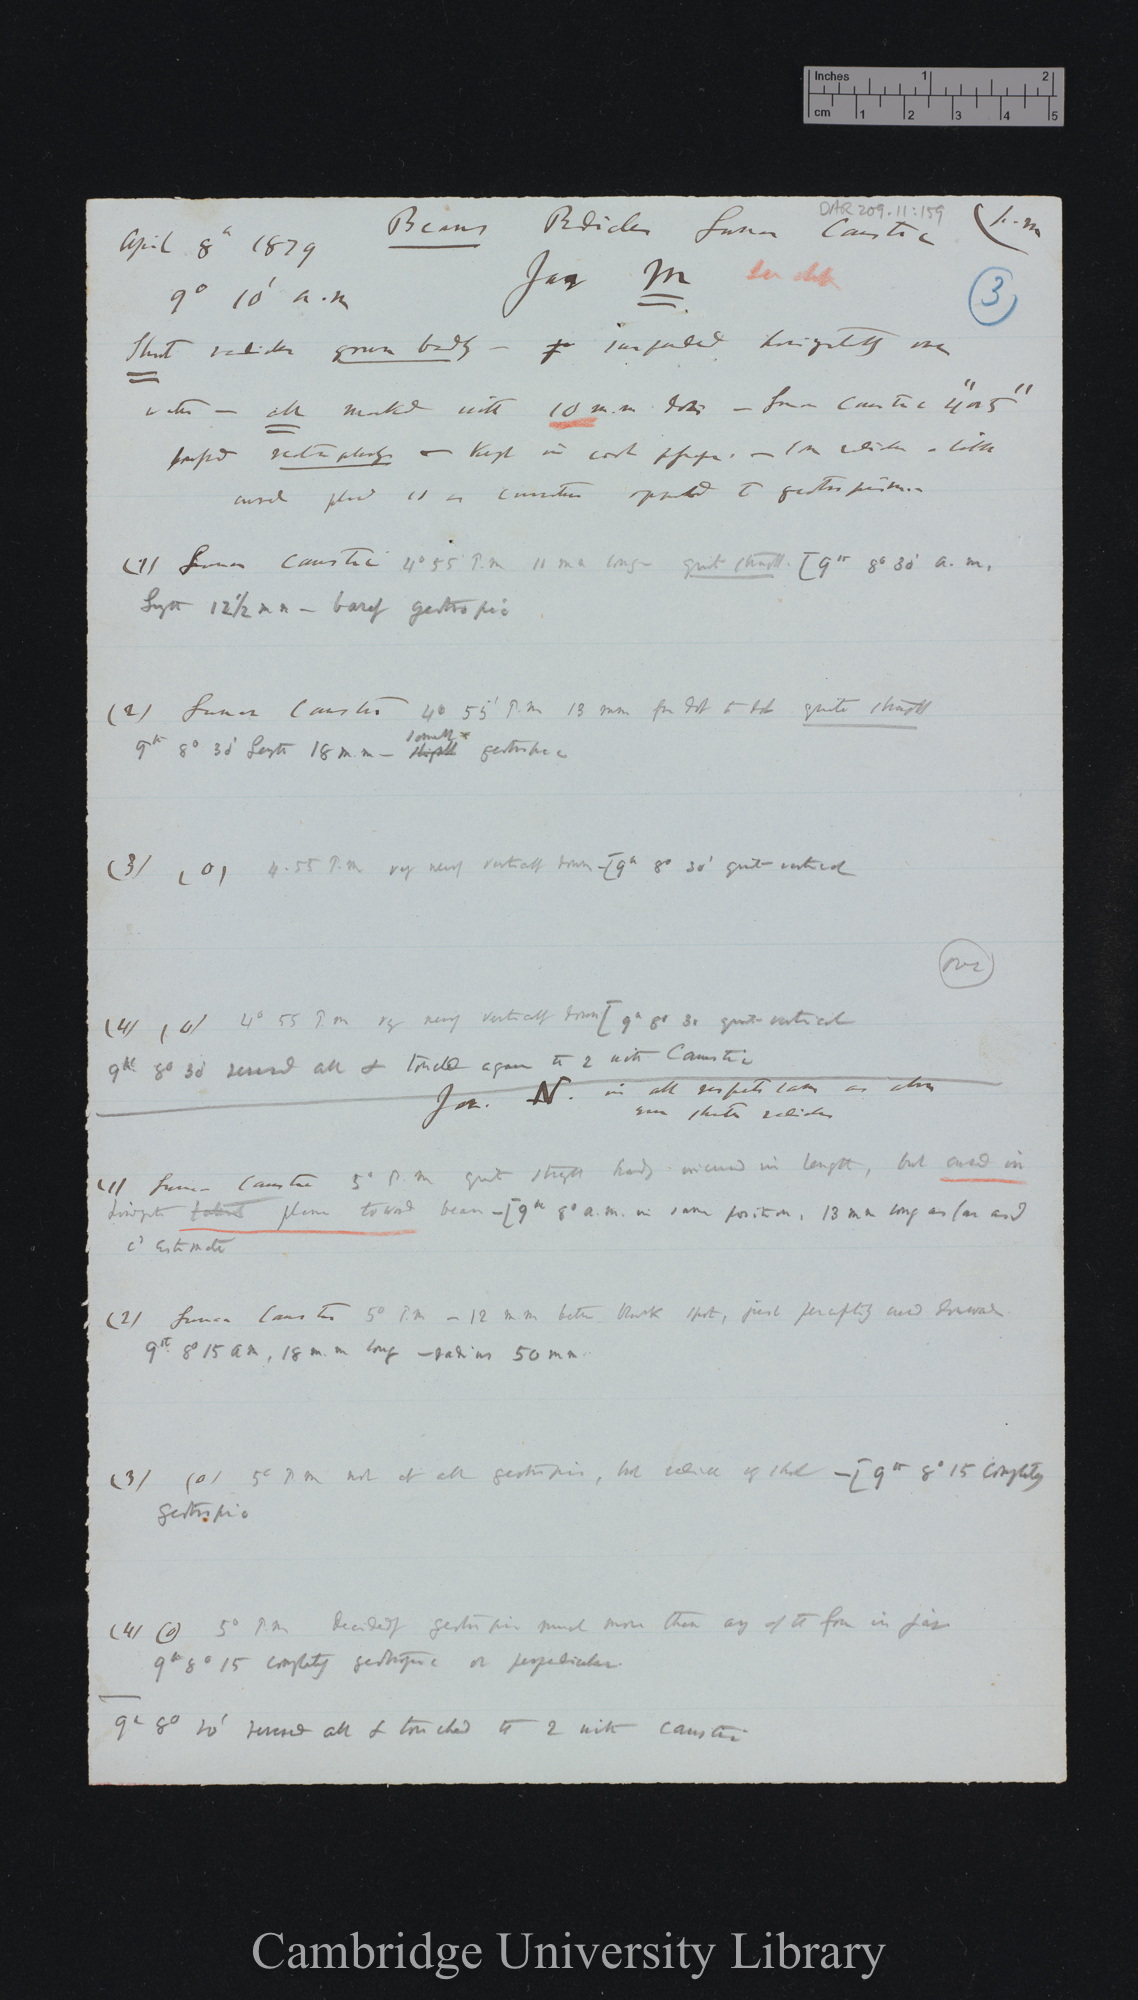 Inches 1 2
cm 1 2 3 4 5
DAR 209.11:159
April 8th 1879 Beans Radicles Lunar Caustic
9° 10' a.m Jar M 3
Short radicles grown badly — suspended horizontally over
water — all marked with 10 m.m dots — Lunar Caustic
(1) Lunar Caustic 4° 55' P.m 11 mm long quite straight [9th 8° 30' a.m.
Length 12 1/2 m m — barely geotropic
(2) Lunar Caustic 4° 55' P.m 13 mm from dot to dot quite straight
9th 8° 30' Length 18 m.m — geotropic
(3) (o) 4.55 P.m very nearly vertically down —[9th 8° 30' quite vertical
over
(4) (o) 4° 55 P.m very nearly vertically down [9th 8° 30 quite vertical
9th 8° 30' all & touched again the 2 with Caustic
Jar. N. in all respects same as above
even shorter radicles
(1) Lunar Caustic 5° P.m quite straight hardly increased in length, but curved in
plane toward bean —[9th 8° a.m. in same position. 13 mm long as far as I
cd estimate
(2) Lunar Caustic 5° P.m — 12 m m between black spots, just perceptibly curved downwards
9th 8° 15 a m, 18 m.m long — radius 50 m m.
(3) (o) 5° P.m not at all geotropic, but radicle very short —[9th 8° 15 completely
geotropic
(4) (o) 5° P.m Decidedly geotropic much more than any of the four in jar
9th 8° 15 completely geotropic or perpendicular.
all & touched the 2 with caustic
Cambridge University Library